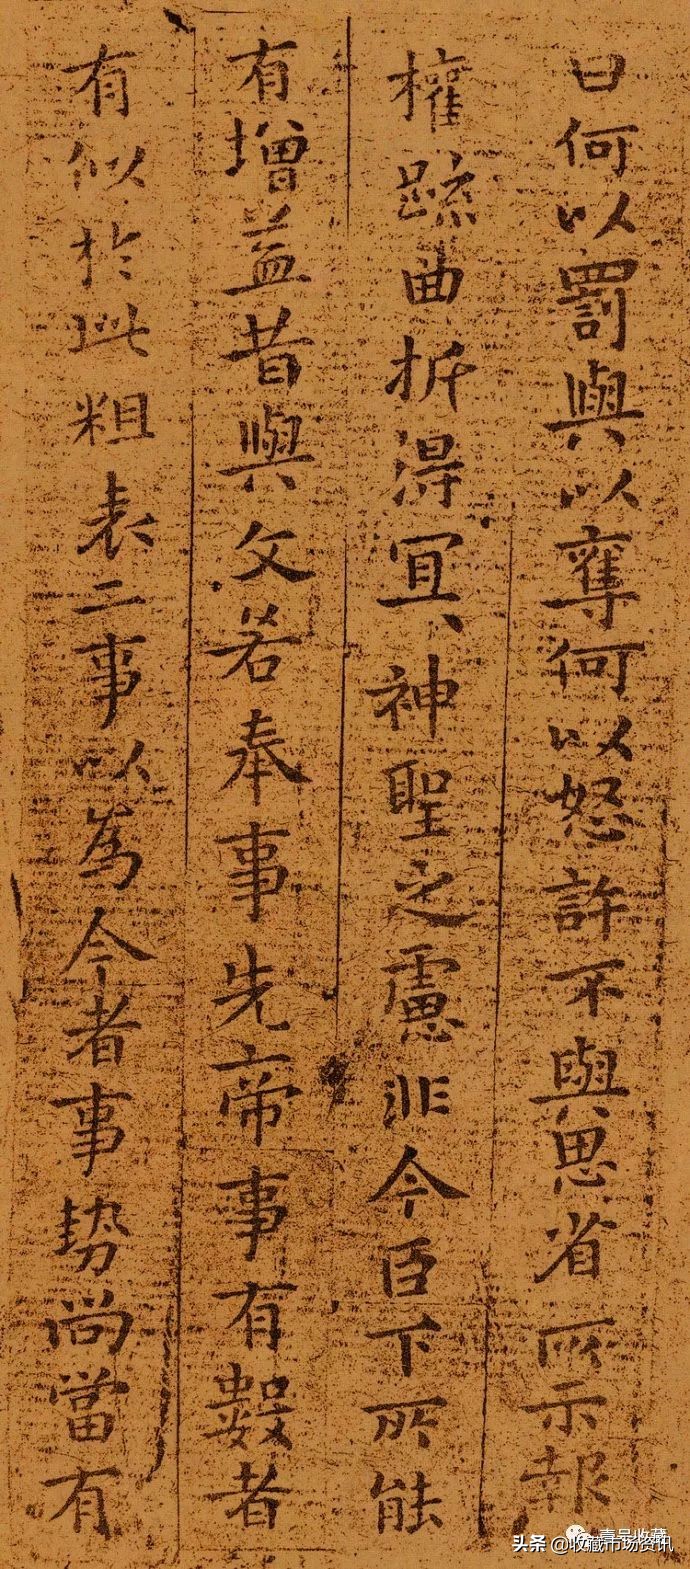 曰何以罰與以奪何以怒許不與思省所示報
權踈曲折得冝神聖之慮非今臣下所能
有增益昔與文若奉事先帝事有數者
有似於此粗表二事以為今者事勢尚當有
壹号收藏
头条 @收藏市场资讯